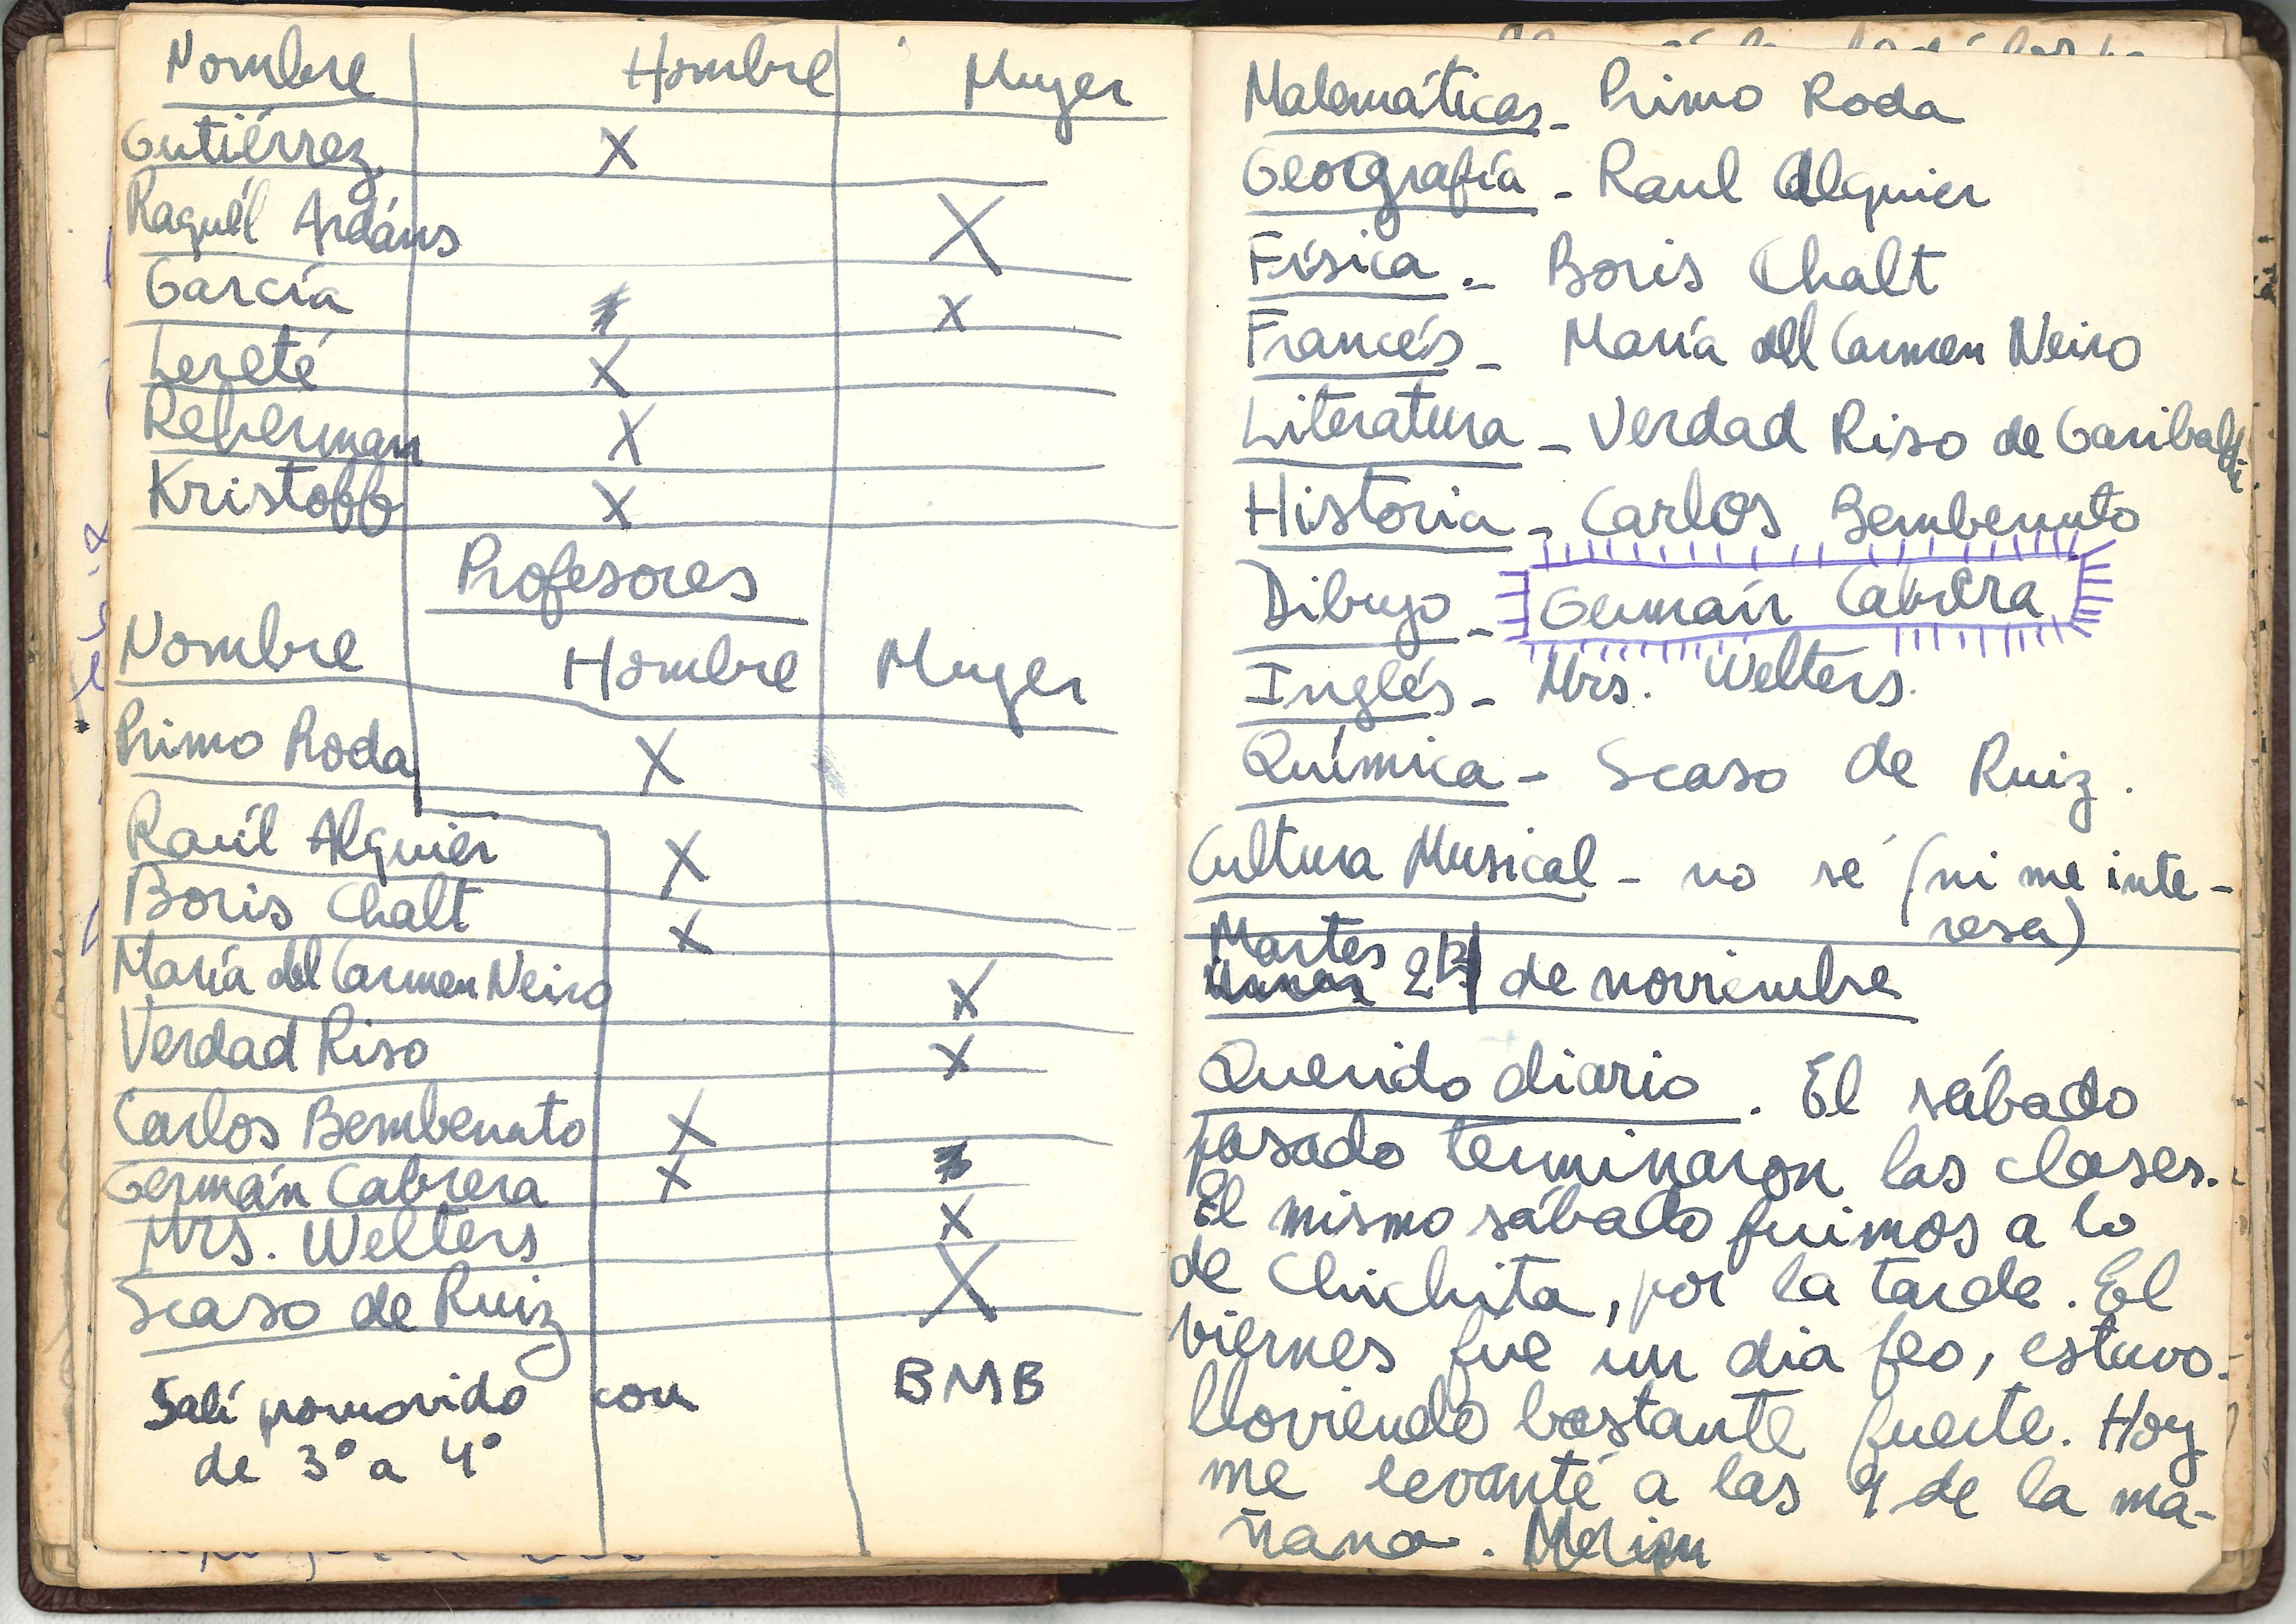 Nombre Hombre Mujer
Gutiérrez X
Raquél Ardáns X
García X
Lereté X
Reherman X
Kristoff X
Profesores
Nombre Hombre Mujer
Primo Roda X
Raúl Alguier X
Boris Chalt X
María del Carmen Neiro X
Verdad Riso X
Carlos Bembenuto X
Germán Cabrera X
Mrs. Welters X
Scaso de Ruiz X
Salí promovido con BMB
de 3º a 4º
Matemáticas - Primo Roda
Geografía - Raul Alguier
Física - Boris Chalt
Francés - María del Carmen Neiro
Literatura - Verdad Riso de Garibaldi
Historia - Carlos Bembenuto
Dibujo - Germán Cabrera
Inglés - Mrs. Welters.
Química - Scaso de Ruiz.
Cultura Musical - no sé (ni me inte-
resa)
Martes
de noviembre
Querido diario. El sábado
pasado terminaron las clases.
El mismo sábado fuimos a lo
de Chichita, por la tarde. El
viernes fue un dia feo, estuvo
lloviendo bastante fuerte. Hoy
me levanté a las 9 de la ma-
ñana.